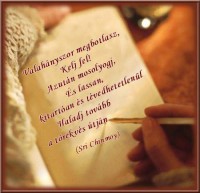 Valahányszor megbotlasz,
Kelj fel!
Azután mosolyogj,
És lassan,
kitartóan és tévedhetetlenül
Haladj tovább
a törekvés útján
(Sri Chinmoy)